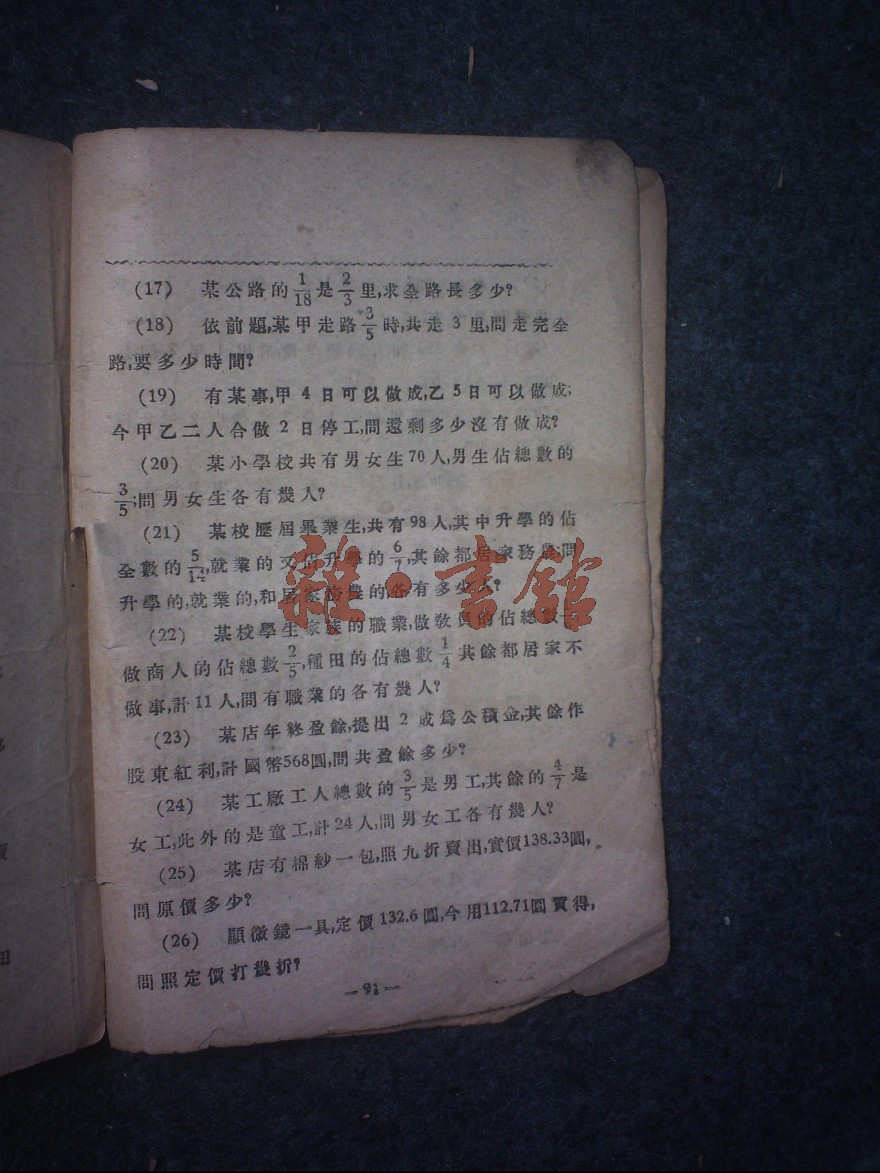 (17) 某公路的1/18是2/3里,求全路長多少?
(18) 依前題,某甲走路3/5時,共走3里,問走完全
路,要多少時間?
(19) 有某事,甲4日可以做成,乙5日可以做成;
今甲乙二人合做2日停工,問還剩多少沒有做成?
(20) 某小學校共有男女生70人,男生佔總數的
3/5;問男女生各有幾人?
(21) 某校歷屆畢業生,共有98人,其中升學的佔
全數的5/14,就業的又佔升學的6/7,其餘都居家務農,問
升學的,就業的,和居家務農的,各有多少人?
(22) 某校學生家族的職業,做敎員的佔總數
做商人的佔總數2/5,種田的佔總數1/4其餘都居家不
做事,計11人,問有職業的各有幾人?
(23) 某店年終盈餘,提出2成爲公積金,其餘作
股東紅利,計國幣568圓,問共盈餘多少?
(24) 某工廠工人總數的3/5是男工,其餘的4/7是
女工,此外的是童工,計24人,問男女工各有幾人?
(25) 某店有棉紗一包,照九折賣出,實價138.33圓,
問原價多少?
(26) 顯微鏡一具,定價132.6圓,今用112.71圓買得,
問照定價打幾折?
—91—
雜·書館